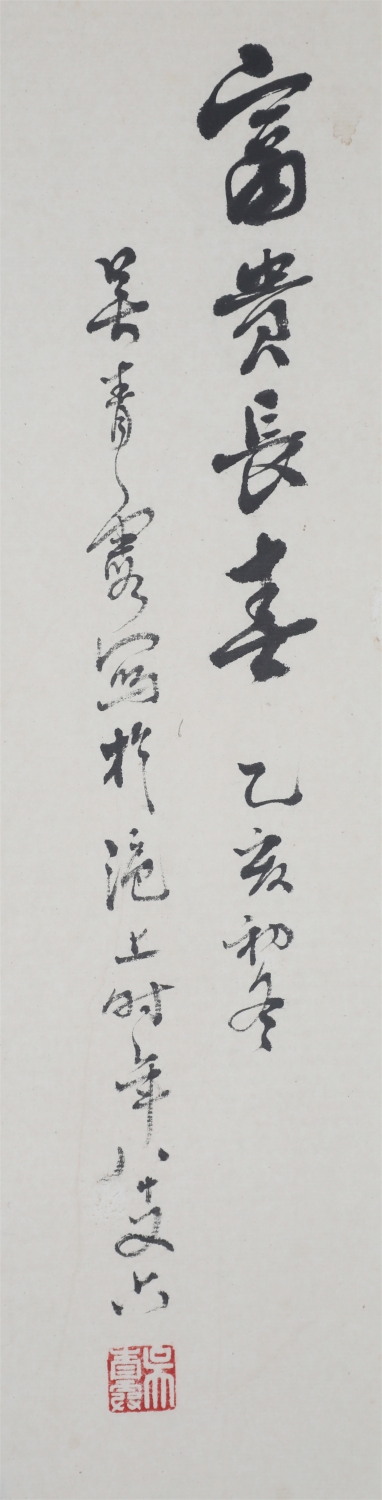 富貴長春 乙亥初冬
吴青霞寫於滬上时年八十又六
吳青霞